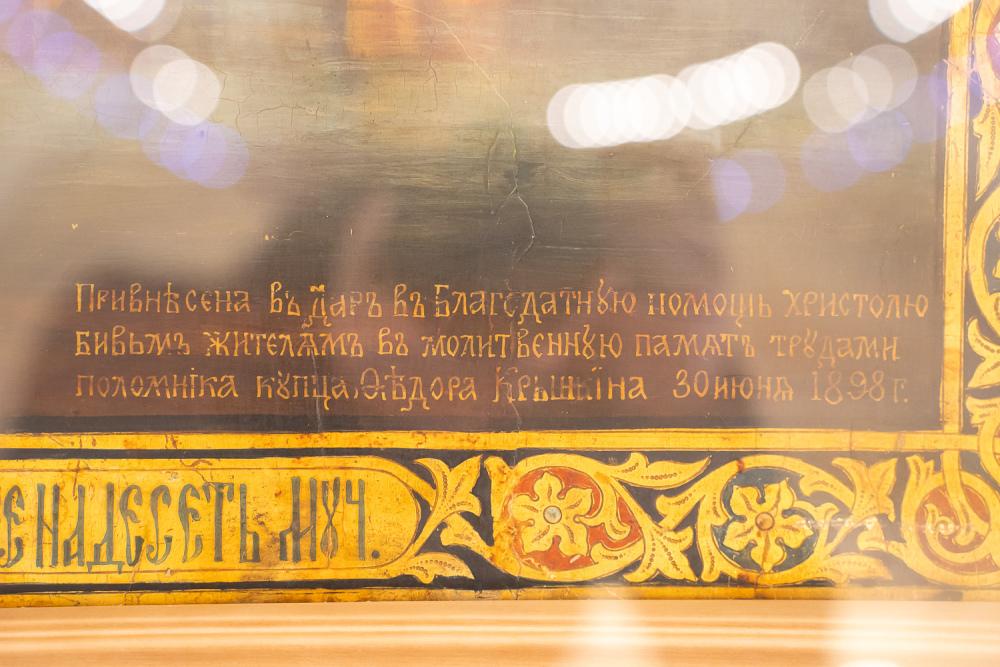 Привнѣсена въ Даръ въ Благодатнꙋю помощь христолю
бивымъ жителямъ въ молитвеннꙋю память трꙋдами
поломніка кꙋпца Ѳѣдора 30 июня 1898 г.
ЕНАДЕСЕТЬ МꙊЧ.